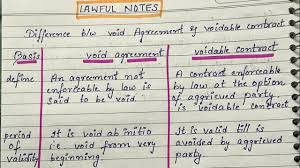 LAWFUL NOTES
Difference b/w Void Agreement & voidable contract
Basis void agreement voidable contract
define An agreement not A contract enforceable
enforceable by law is by law at the option
said to be void. of aggrieved party
is voidable contract
period It is void ab initio It is valid till is
of i.e. void from very avoided by aggrieved
validity beginning party